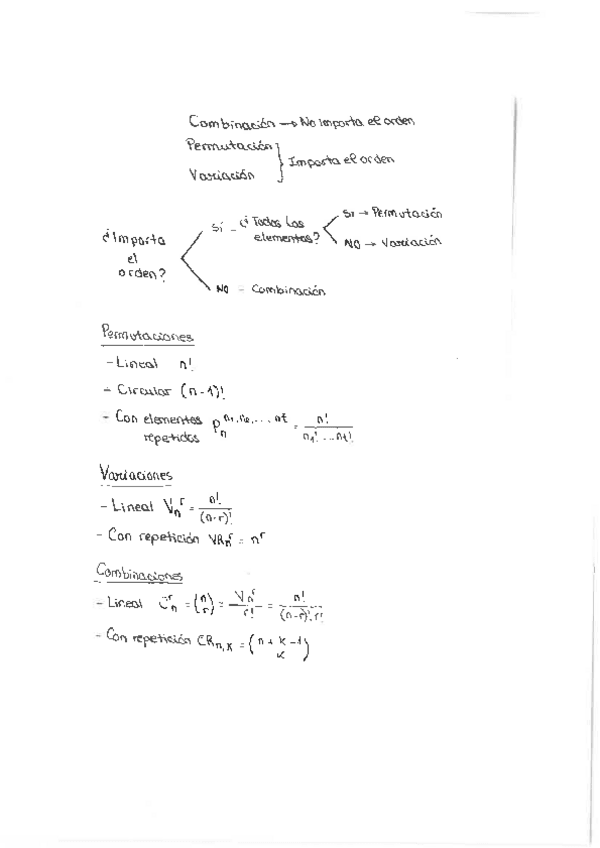 Combinación → No importa el orden
Permutación
Variación } Importa el orden
¿Importa el orden?
Sí - ¿Todos los elementos?
SI → Permutación
NO → Variación
NO - Combinación
Permutaciones
- Lineal n!
- Circular (n-1)!
- Con elementos repetidos P_n^{n1,n2,...nt} = n! / (n1!...nt!)
Variaciones
- Lineal V_n^r = n! / (n-r)!
- Con repetición VR_n^r = n^r
Combinaciones
- Lineal C_n^r = (n r) = V_n^r / r! = n! / (n-r)! r!
- Con repetición CR_{n,k} = (n+k-1 k)